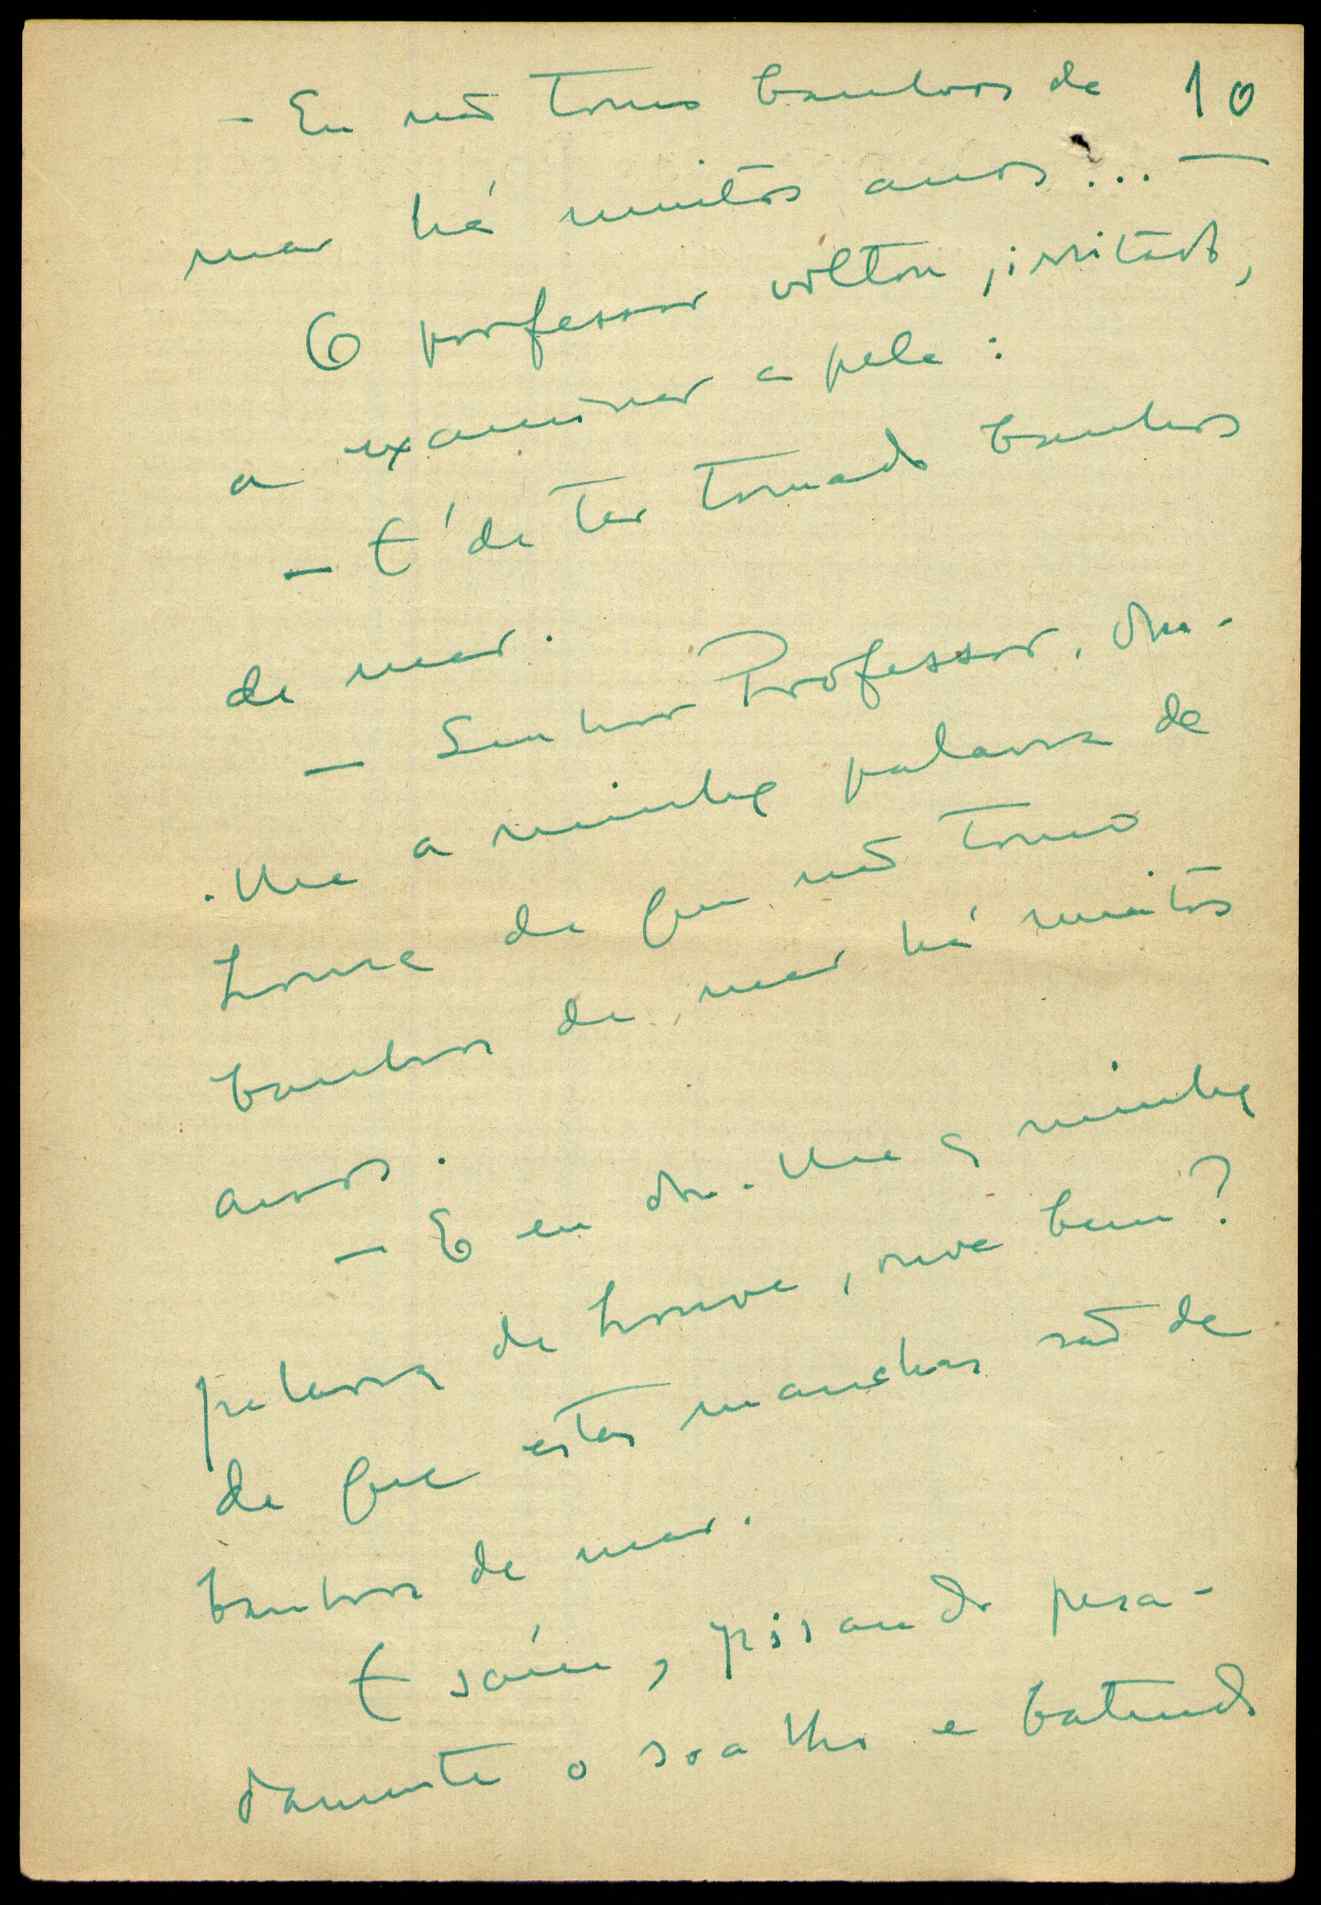 - Eu não tomo banhos de 10
mar há muitos anos... —
O professor voltou, irritado,
a examinar a pele:
— É de ter tomado banhos
de mar.
— Senhor Professor, dou-
-lhe a minha palavra de
honra de que não tomo
banhos de mar há muitos
anos.
— E eu dou-lhe a minha
palavra de honra, ouve bem?
de que estas manchas são de
banhos de mar.
E saíu, pisando pesa-
damente o soalho e batendo